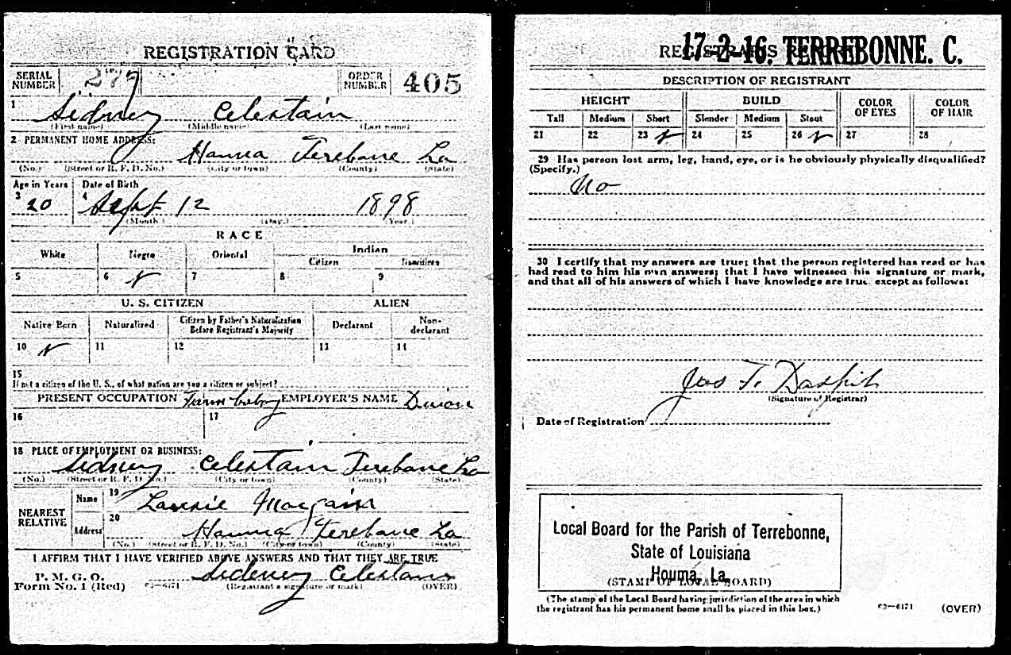 REGISTRATION CARD
SERIAL NUMBER 279 ORDER NUMBER 405
1 Sidney Celestain
(First name) (Middle name) (Last name)
2 PERMANENT HOME ADDRESS:
Hauma Terebane La
(No.) (Street or R. F. D. No.) (City or town) (County) (State)
Age in Years Date of Birth
3 20 4 Sept 12 1898
(Month.) (Day.) (Year.)
RACE
White Negro Oriental Indian
Citizen Noncitizen
5 6 7 8 9
U. S. CITIZEN ALIEN
Native Born Naturalized Citizen by Father's Naturalization Before Registrant's Majority Declarant Non-declarant
10 11 12 13 14
15
If not a citizen of the U. S., of what nation are you a citizen or subject?
PRESENT OCCUPATION EMPLOYER'S NAME
16 Farm 17
18 PLACE OF EMPLOYMENT OR BUSINESS:
Sidney Celestain Terebane La
(No.) (Street or R. F. D. No.) (City or town) (County) (State)
NEAREST RELATIVE Name 19
Address 20 Hauma Terebane La
(No.) (Street or R. F. D. No.) (City or town) (County) (State)
I AFFIRM THAT I HAVE VERIFIED ABOVE ANSWERS AND THAT THEY ARE TRUE
P. M. G. O.
Form No. 1 (Red) 03—6171 Sideney Celestans
(Registrant's signature or mark) (OVER)
17-2-16. TERREBONNE. C.
DESCRIPTION OF REGISTRANT
HEIGHT BUILD COLOR OF EYES COLOR OF HAIR
Tall Medium Short Slender Medium Stout
21 22 23 24 25 26 27 28
29 Has person lost arm, leg, hand, eye, or is he obviously physically disqualified?
(Specify.)
No
30 I certify that my answers are true; that the person registered has read or has
had read to him his own answers; that I have witnessed his signature or mark,
and that all of his answers of which I have knowledge are true, except as follows:
Jos T. Daspit
(Signature of Registrar)
Date of Registration
Local Board for the Parish of Terrebonne,
State of Louisiana
Houma, La.
(STAMP OF LOCAL BOARD)
(The stamp of the Local Board having jurisdiction of the area in which
the registrant has his permanent home shall be placed in this box.)
03—6171 (OVER)